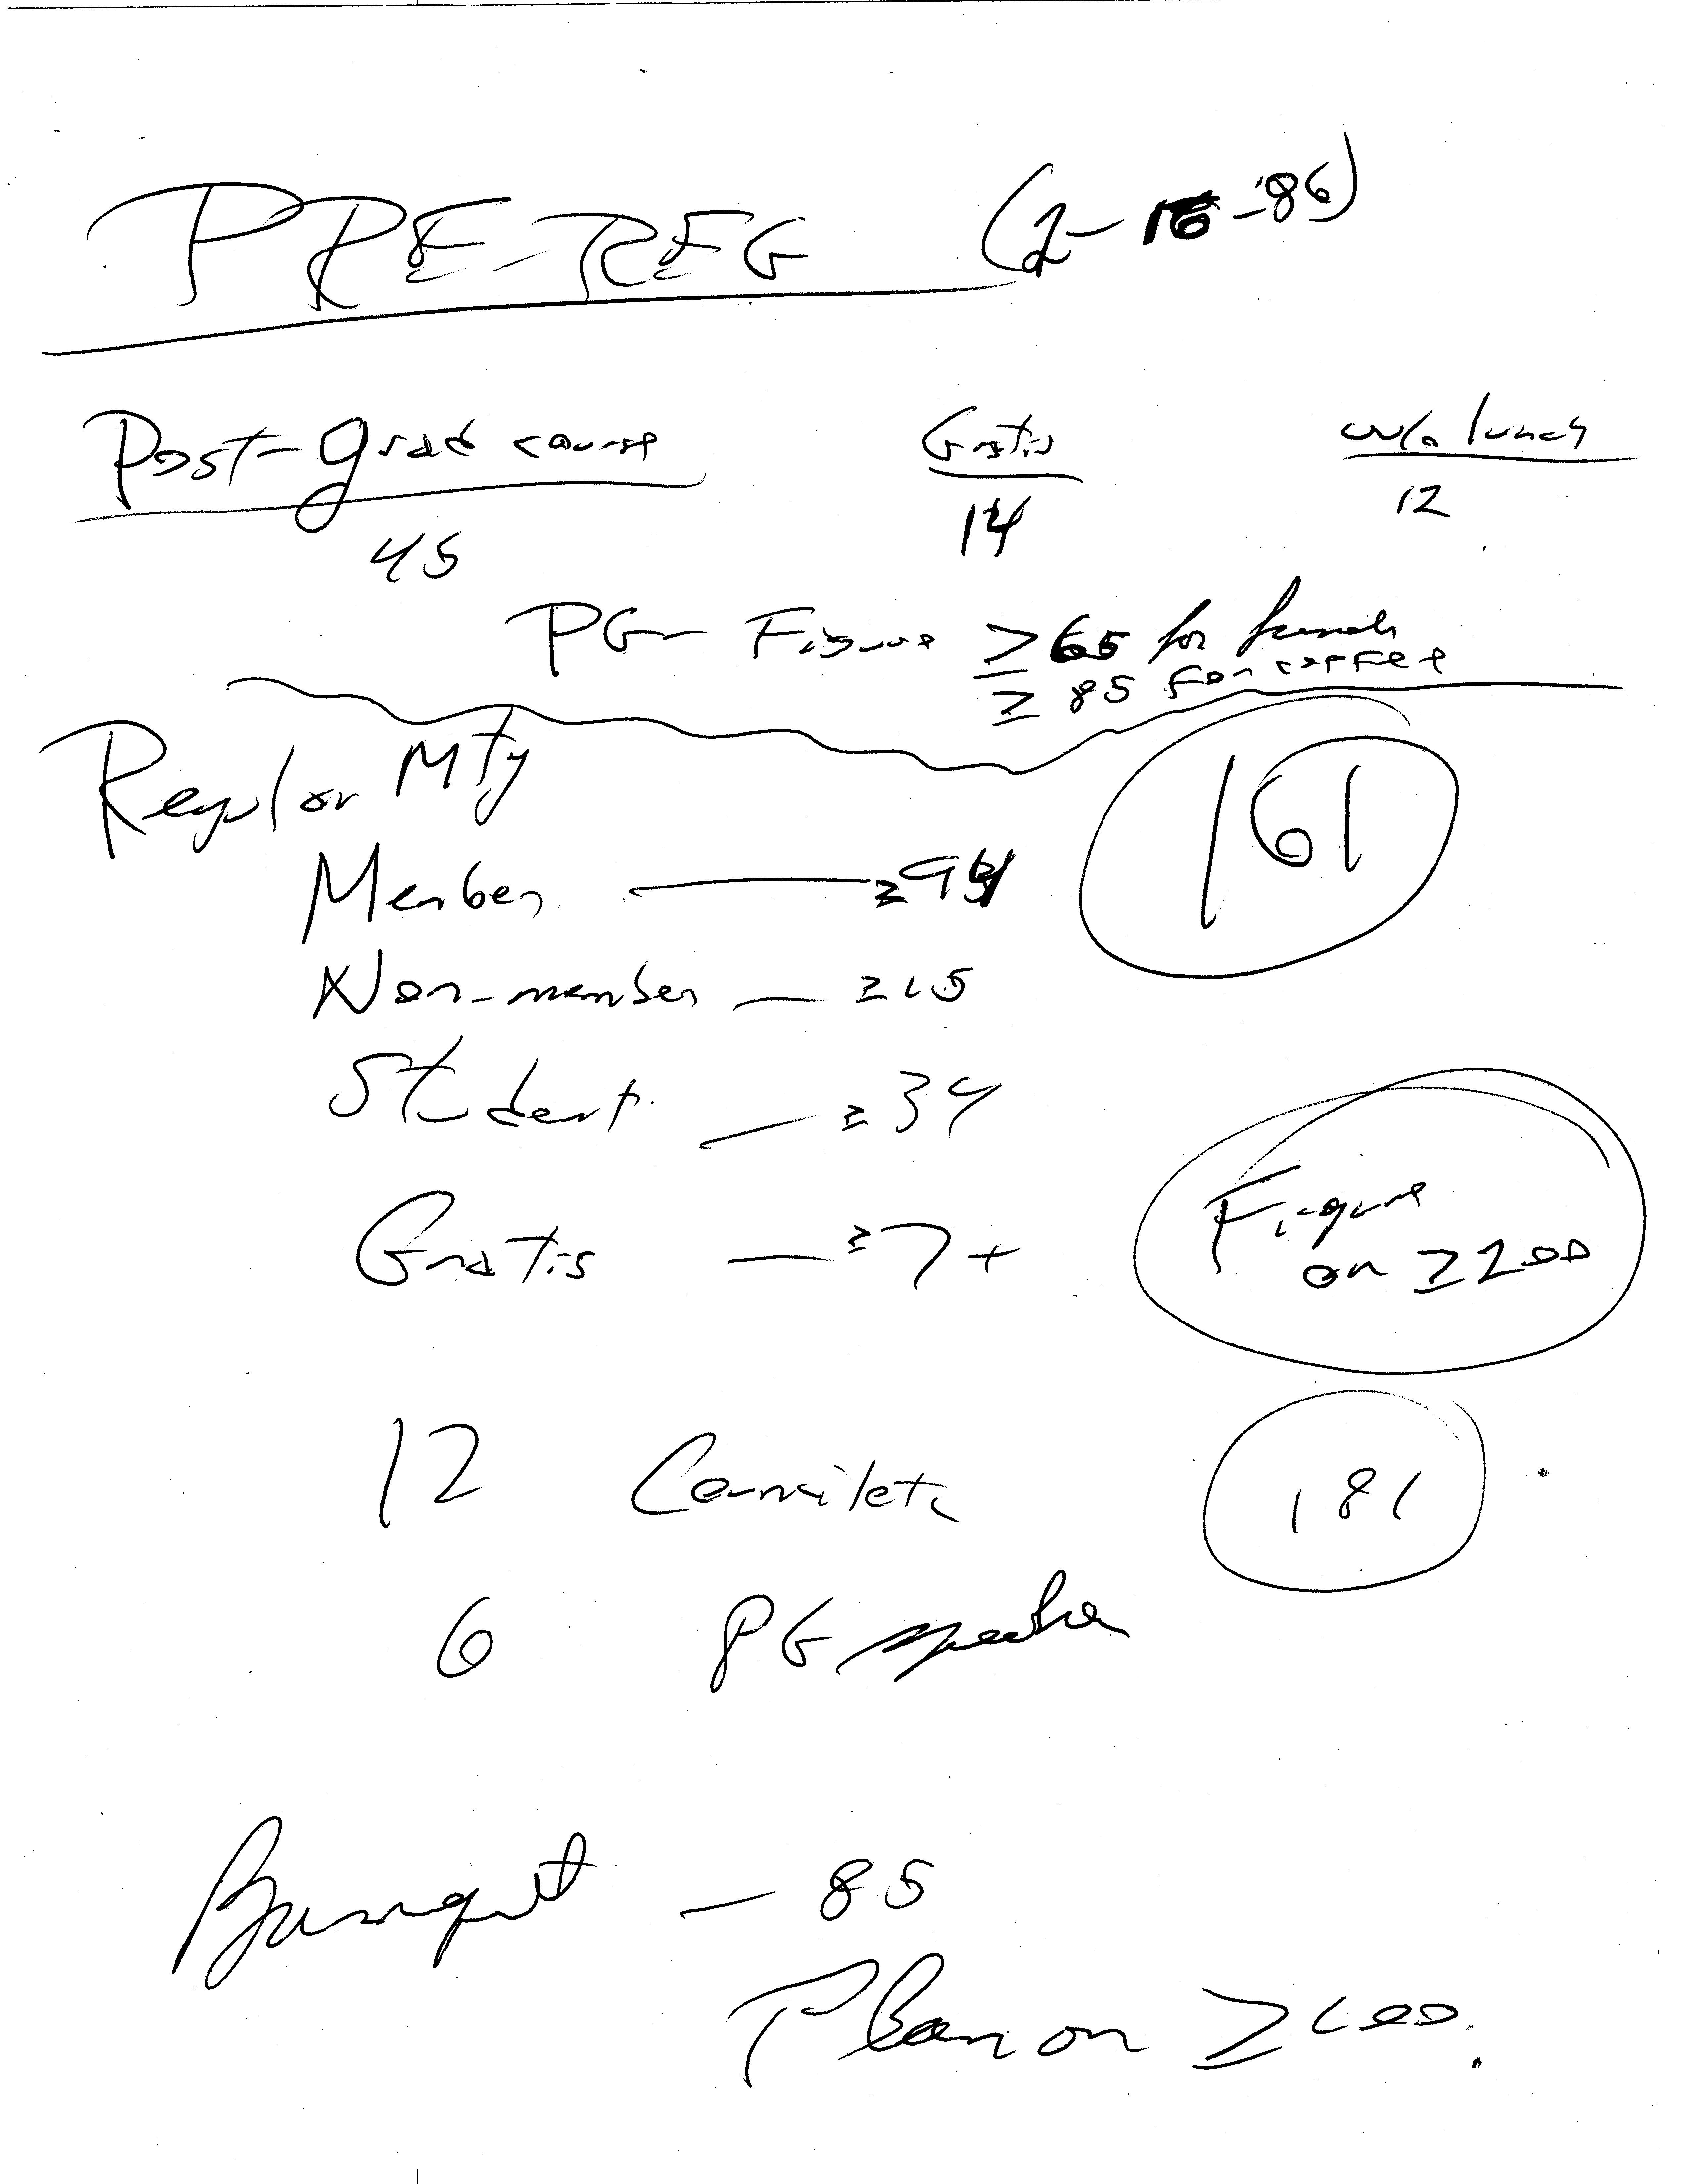 PRE-REG (2-18-86)
Post-grad course Gratis w/o lunch
45 14 12
PG- Figure ≥65 for lunch
≥ 85 for coffee
Regular Mtg
161
Member — ≥94
Non-member — ≥15
Student — ≥34
Gratis — ≥7+
Figure
on ≥200
12
181
6 PG speaker
Banquet — 85
Plan on ≥100.